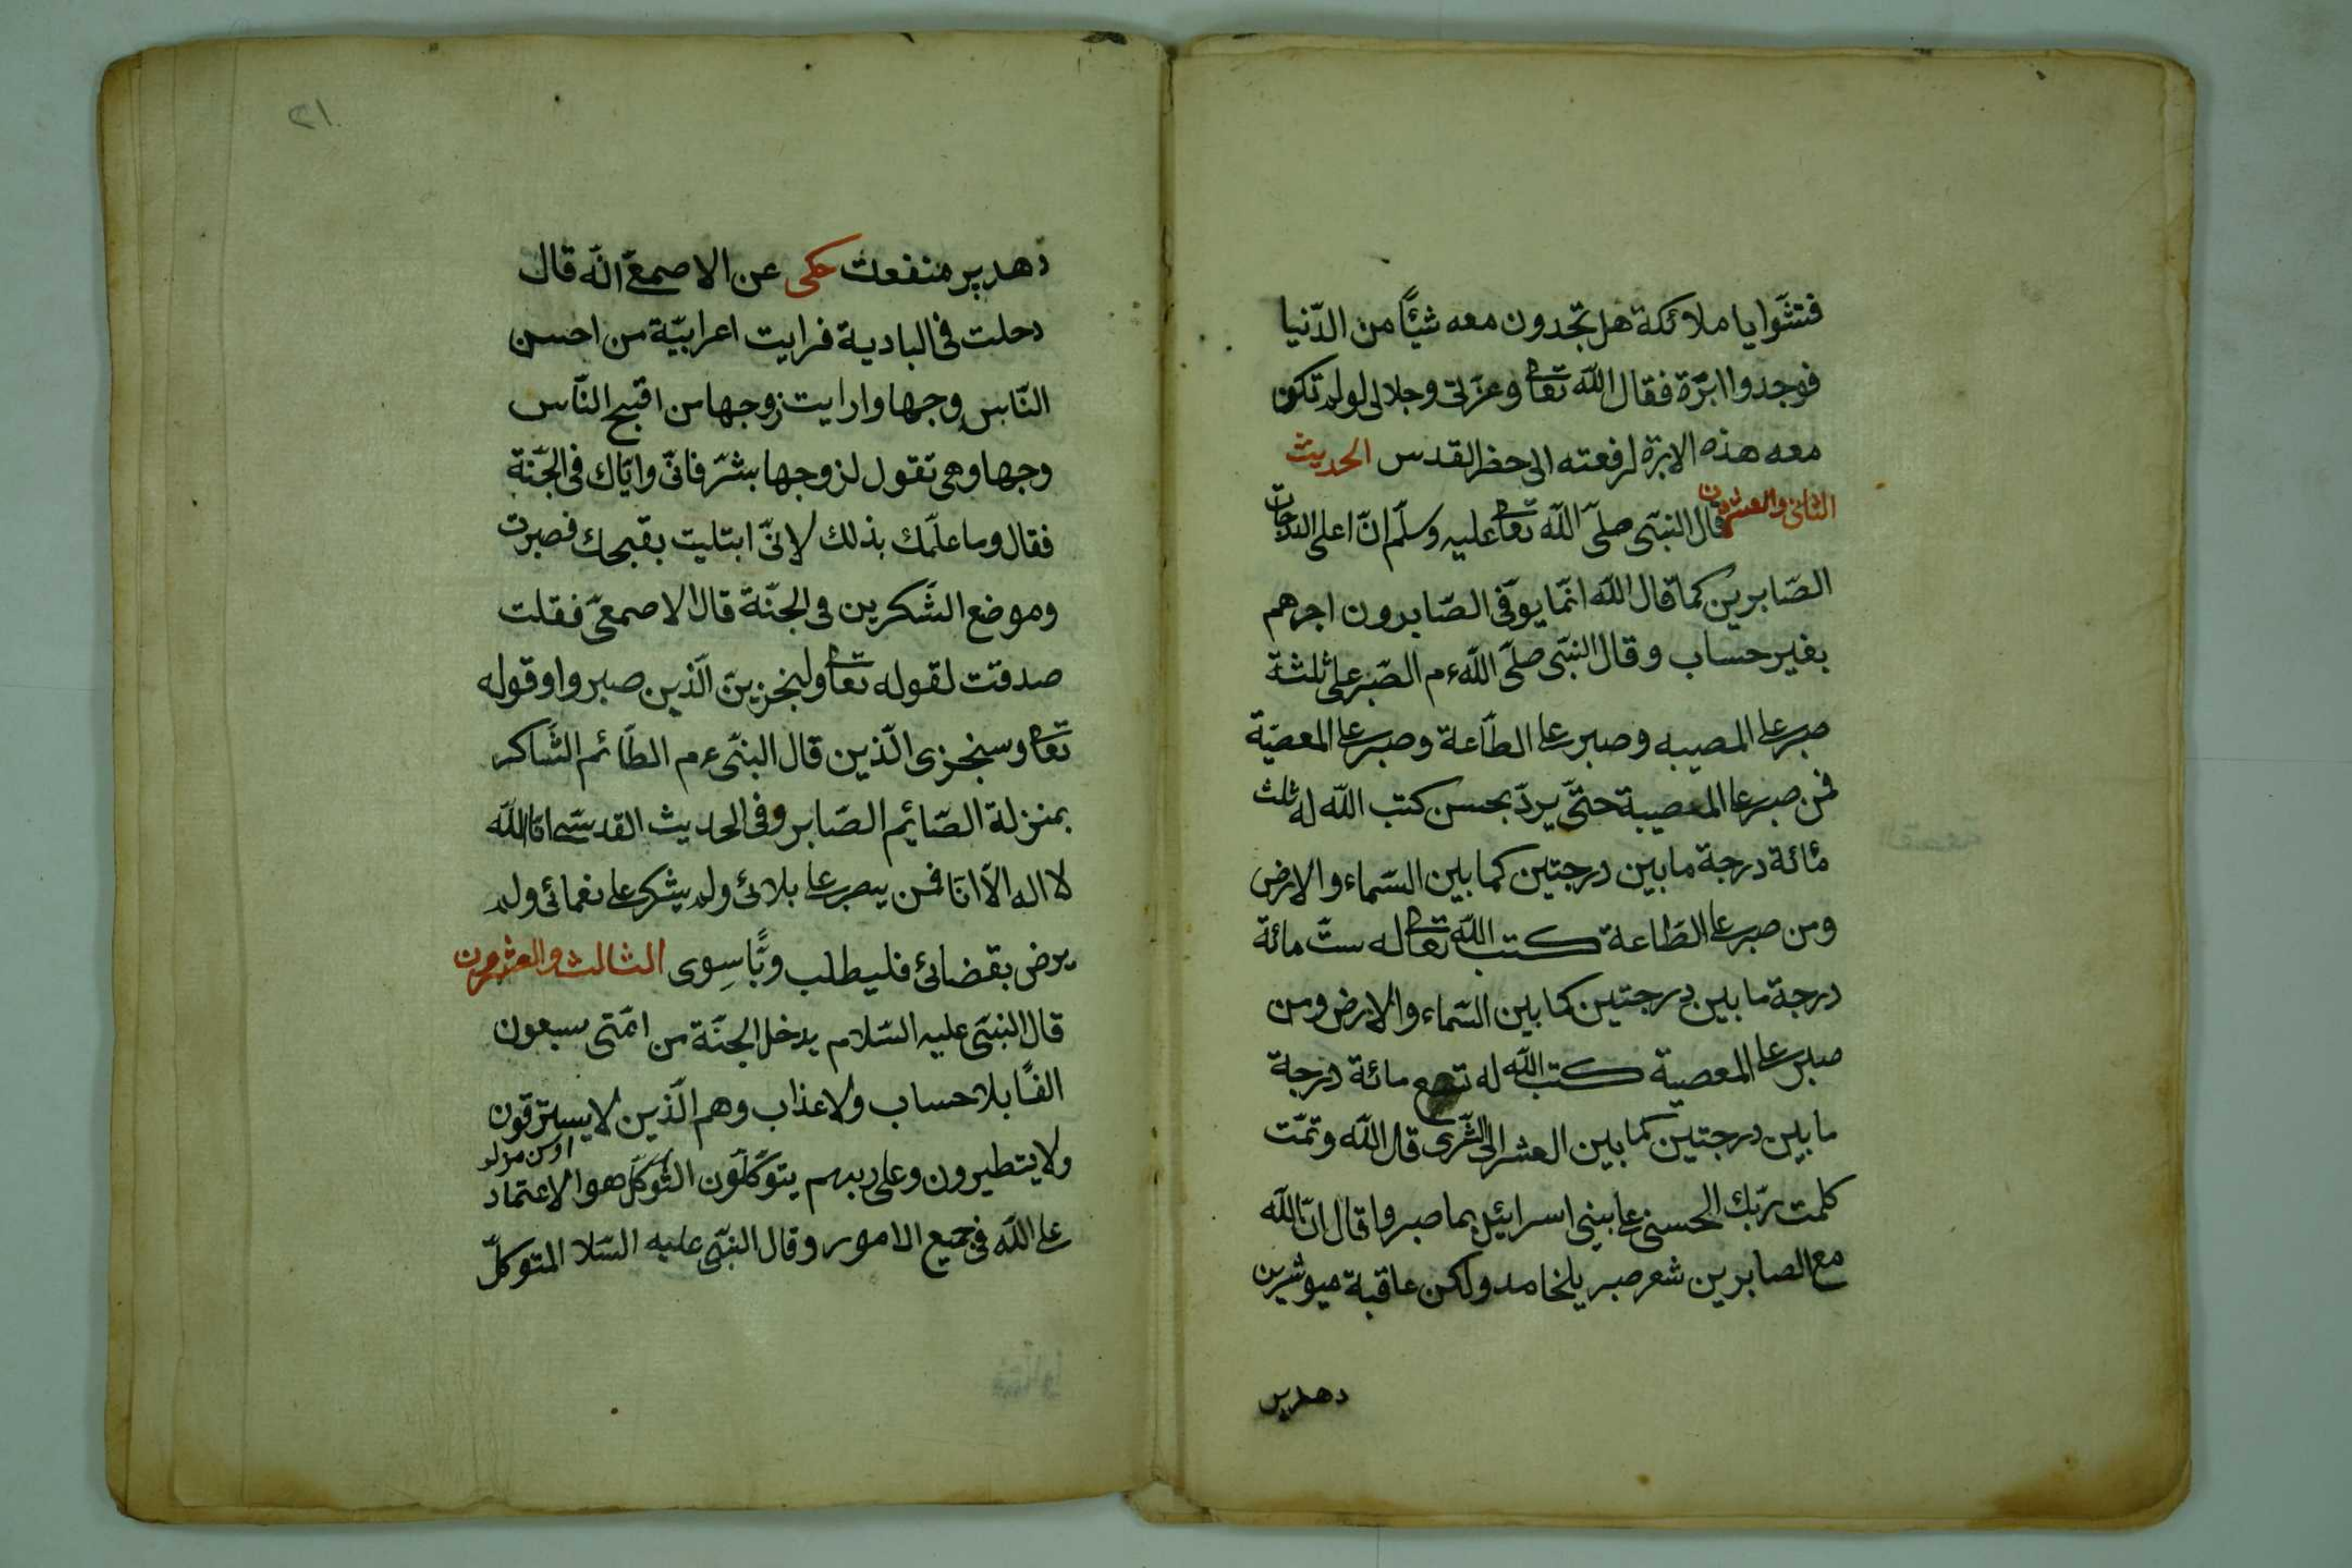 فتشوا يا ملائكة هل تجدون معه شيئًا من الدّنيا
فوجدوا ابرّة فقال اللّه تعا وعزّتى وجلالى لو لم تكن
معه هذه الابرة لرفعته الى حظر القدس الحديث
الثانى والعشرون قال النبّى صلىّ اللّه تعا عليه وسلّم انّ اعلى الدرجات
الصّابرين كما قال اللّه انّما يوفّى الصّابرون اجرهم
بغير حساب وقال النبّى صلىّ اللّه ءم الصّبر على ثلثة
صبر على المصيبه وصبر على الطّاعة وصبر على المعصيّة
فمن صبر على المعصيبة حتىّ يردّ بحسن كتب اللّه له ثلث
مٔائة درجة ما بين درجتين كما بين السّماء والارض
ومن صبر على الطّاعة كتب اللّه تعا له ستّ مائة
درجة ما بين درجتين كما بين السّماء والارض ومن
صبر على المعصية كتب اللّه له تسع مائة درجة
ما بين درجتين كما بين العشر الى الثّرى قال اللّه وتمّت
كلمت ربّك الحسنى على بينى اسرائيل بما صبروا قال انّ اللّه
مع الصابرين شعر صبر يلخامد ولكن عاقبة ميو شرين
دهدبر
٢١
دهد پر منفعت حكى عن الاصمعىّ انّه قال
دحلت فى البادية فرايت اعرابيّة من احسن
النّاس وجها وارايت زوجها من اقبح النّاس
وجها وهى تقول لزوجها بشّر فانىّ وايّاك فى الجّنة
فقال وما علّمك بذلك لانىّ ابتليت بقبحك فصبرت
وموضع الشّكرين فى الجنّة قال الاصمعىّ فقلت
صدقت لقوله تعا ولنجزينّ الّذين صبروا وقوله
تعا وسنجزى الّذين قال النبّى ءم الطّائم الشّاكر
بمنزلة الصّائم الصّابر وفى الحديث القدسىّ انا اللّه
لا اله الاّ انا فمن يصبر على بلائى ولم يشكر على نعمائى ولم
يرض بقضائى فليطلب ربًّا سِوى الثالث والعشرون
قال النبّى عليه السّلام يدخل الجنّة من امّتى سبعون
الفًا بلا حساب ولا عذاب وهم الّذين لا يسترقون
ولا يتطيرون وعلى ربهم يتوّكلون التّوكّل هو الاعتماد
على اللّه فى جميع الامور وقال النبّى عليه السّلا المتوكلّ